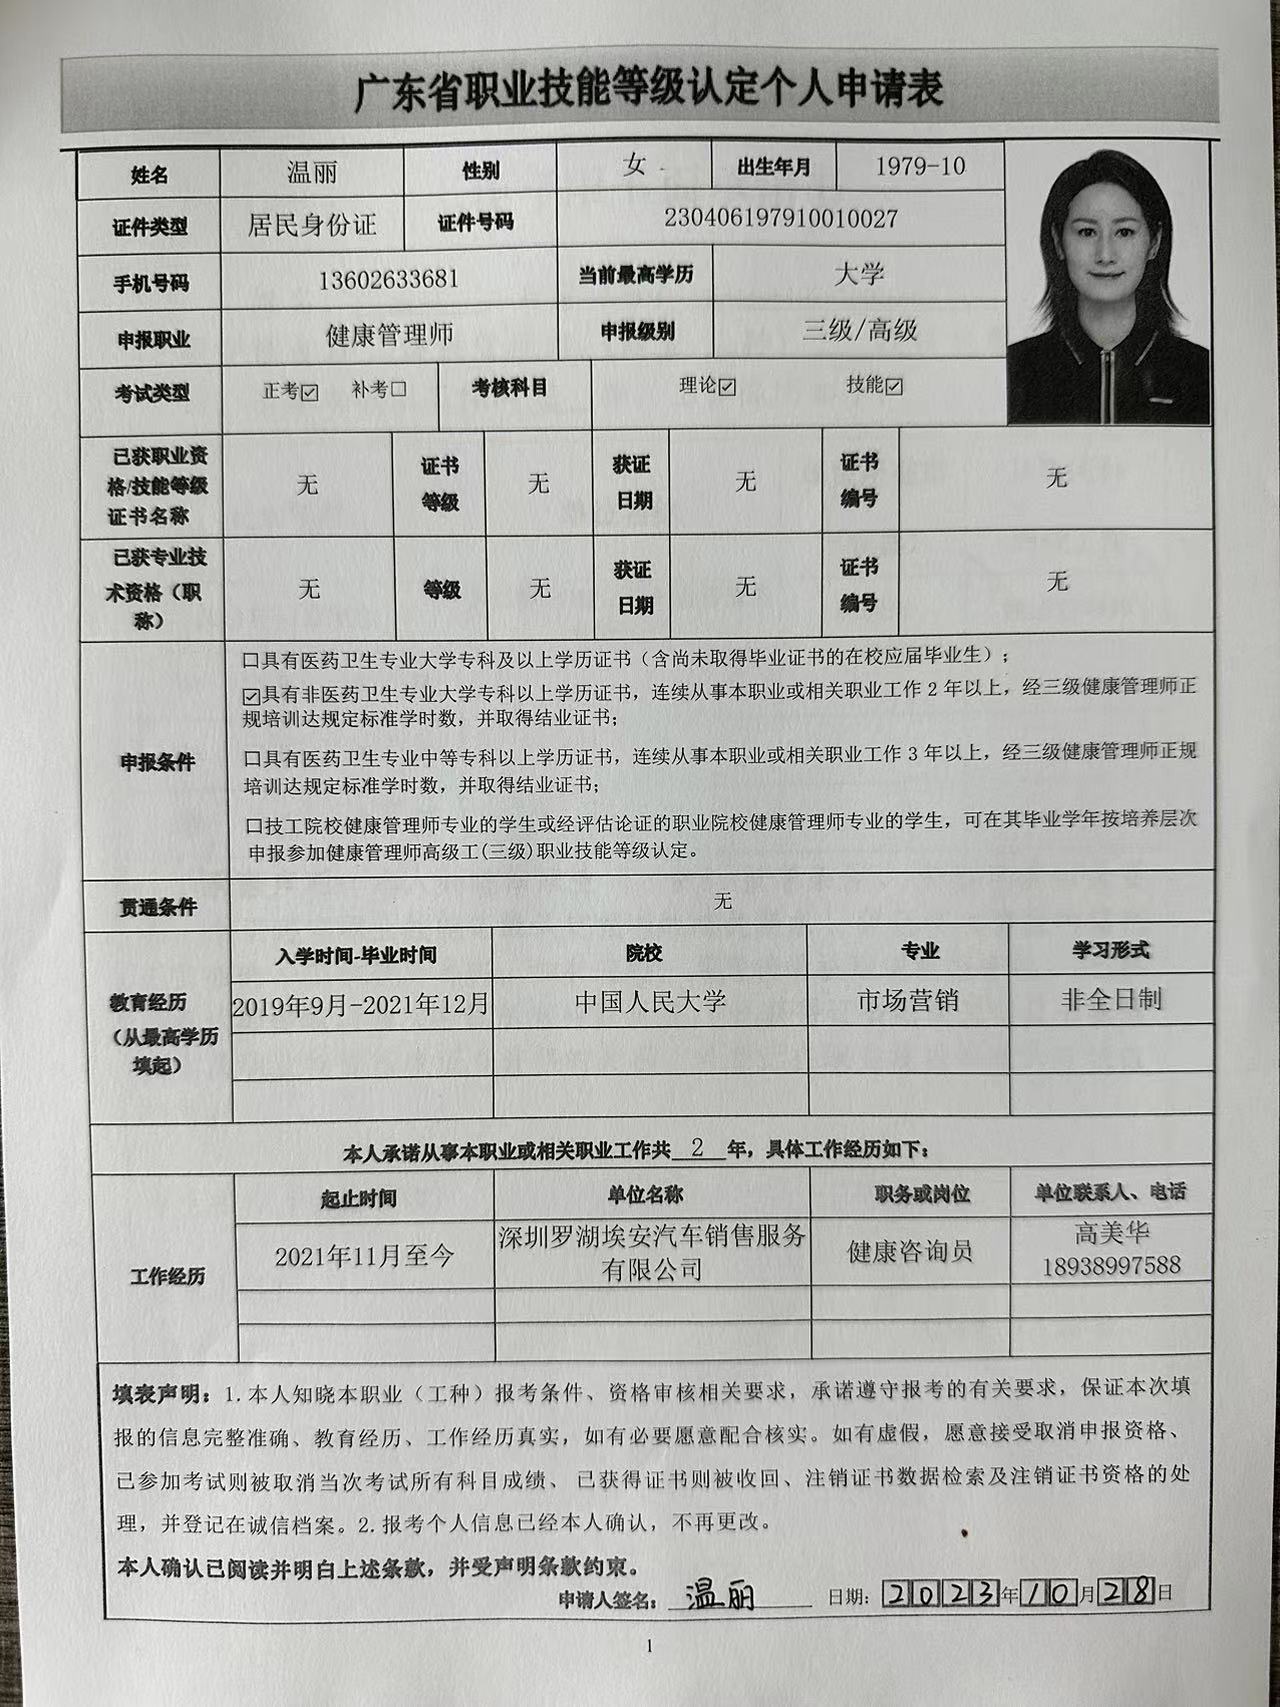 广东省职业技能等级认定个人申请表
姓名 温丽 性别 女 出生年月 1979-10
证件类型 居民身份证 证件号码 230406197910010027
手机号码 13602633681 当前最高学历 大学
申报职业 健康管理师 申报级别 三级/高级
考试类型 正考☑ 补考☐ 考核科目 理论☑ 技能☑
已获职业资
格/技能等级
证书名称
无
证书
等级
无
获证
日期
无
证书
编号
无
已获专业技
术资格（职
称）
无
等级
无
获证
日期
无
证书
编号
无
申报条件
☐具有医药卫生专业大学专科及以上学历证书（含尚未取得毕业证书的在校应届毕业生）；
☑具有非医药卫生专业大学专科以上学历证书，连续从事本职业或相关职业工作 2 年以上，经三级健康管理师正
规培训达规定标准学时数，并取得结业证书；
☐具有医药卫生专业中等专科以上学历证书，连续从事本职业或相关职业工作 3 年以上，经三级健康管理师正规
培训达规定标准学时数，并取得结业证书；
☐技工院校健康管理师专业的学生或经评估论证的职业院校健康管理师专业的学生，可在其毕业学年按培养层次
申报参加健康管理师高级工(三级)职业技能等级认定。
贯通条件 无
教育经历
（从最高学历
填起）
入学时间-毕业时间 院校 专业 学习形式
2019年9月-2021年12月 中国人民大学 市场营销 非全日制
本人承诺从事本职业或相关职业工作共 2 年，具体工作经历如下：
工作经历
起止时间 单位名称 职务或岗位 单位联系人、电话
2021年11月至今
深圳罗湖埃安汽车销售服务
有限公司
健康咨询员
高美华
18938997588
填表声明：1.本人知晓本职业（工种）报考条件、资格审核相关要求，承诺遵守报考的有关要求，保证本次填
报的信息完整准确、教育经历、工作经历真实，如有必要愿意配合核实。如有虚假，愿意接受取消申报资格、
已参加考试则被取消当次考试所有科目成绩、 已获得证书则被收回、注销证书数据检索及注销证书资格的处
理，并登记在诚信档案。2.报考个人信息已经本人确认，不再更改。
本人确认已阅读并明白上述条款，并受声明条款约束。
申请人签名： 温丽 日期：2023年10月28日
1